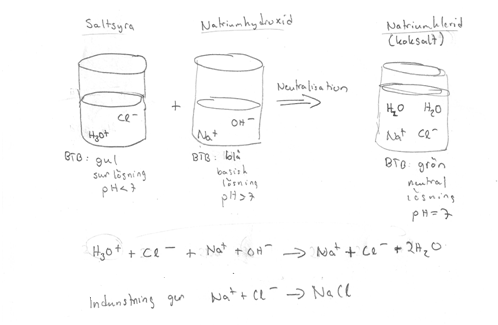 Saltsyra
Natriumhydroxid
Natriumklorid
(koksalt)
Cl⁻
H₃O⁺
+
OH⁻
Na⁺
Neutralisation
H₂O H₂O
Na⁺ Cl⁻
BTB: gul
sur lösning
pH<7
BTB: blå
basisk
lösning
pH>7
BTB: grön
neutral
lösning
pH=7
H₃O⁺ + Cl⁻ + Na⁺ + OH⁻ → Na⁺ + Cl⁻ + 2H₂O
Indunstning ger Na⁺ + Cl⁻ → NaCl